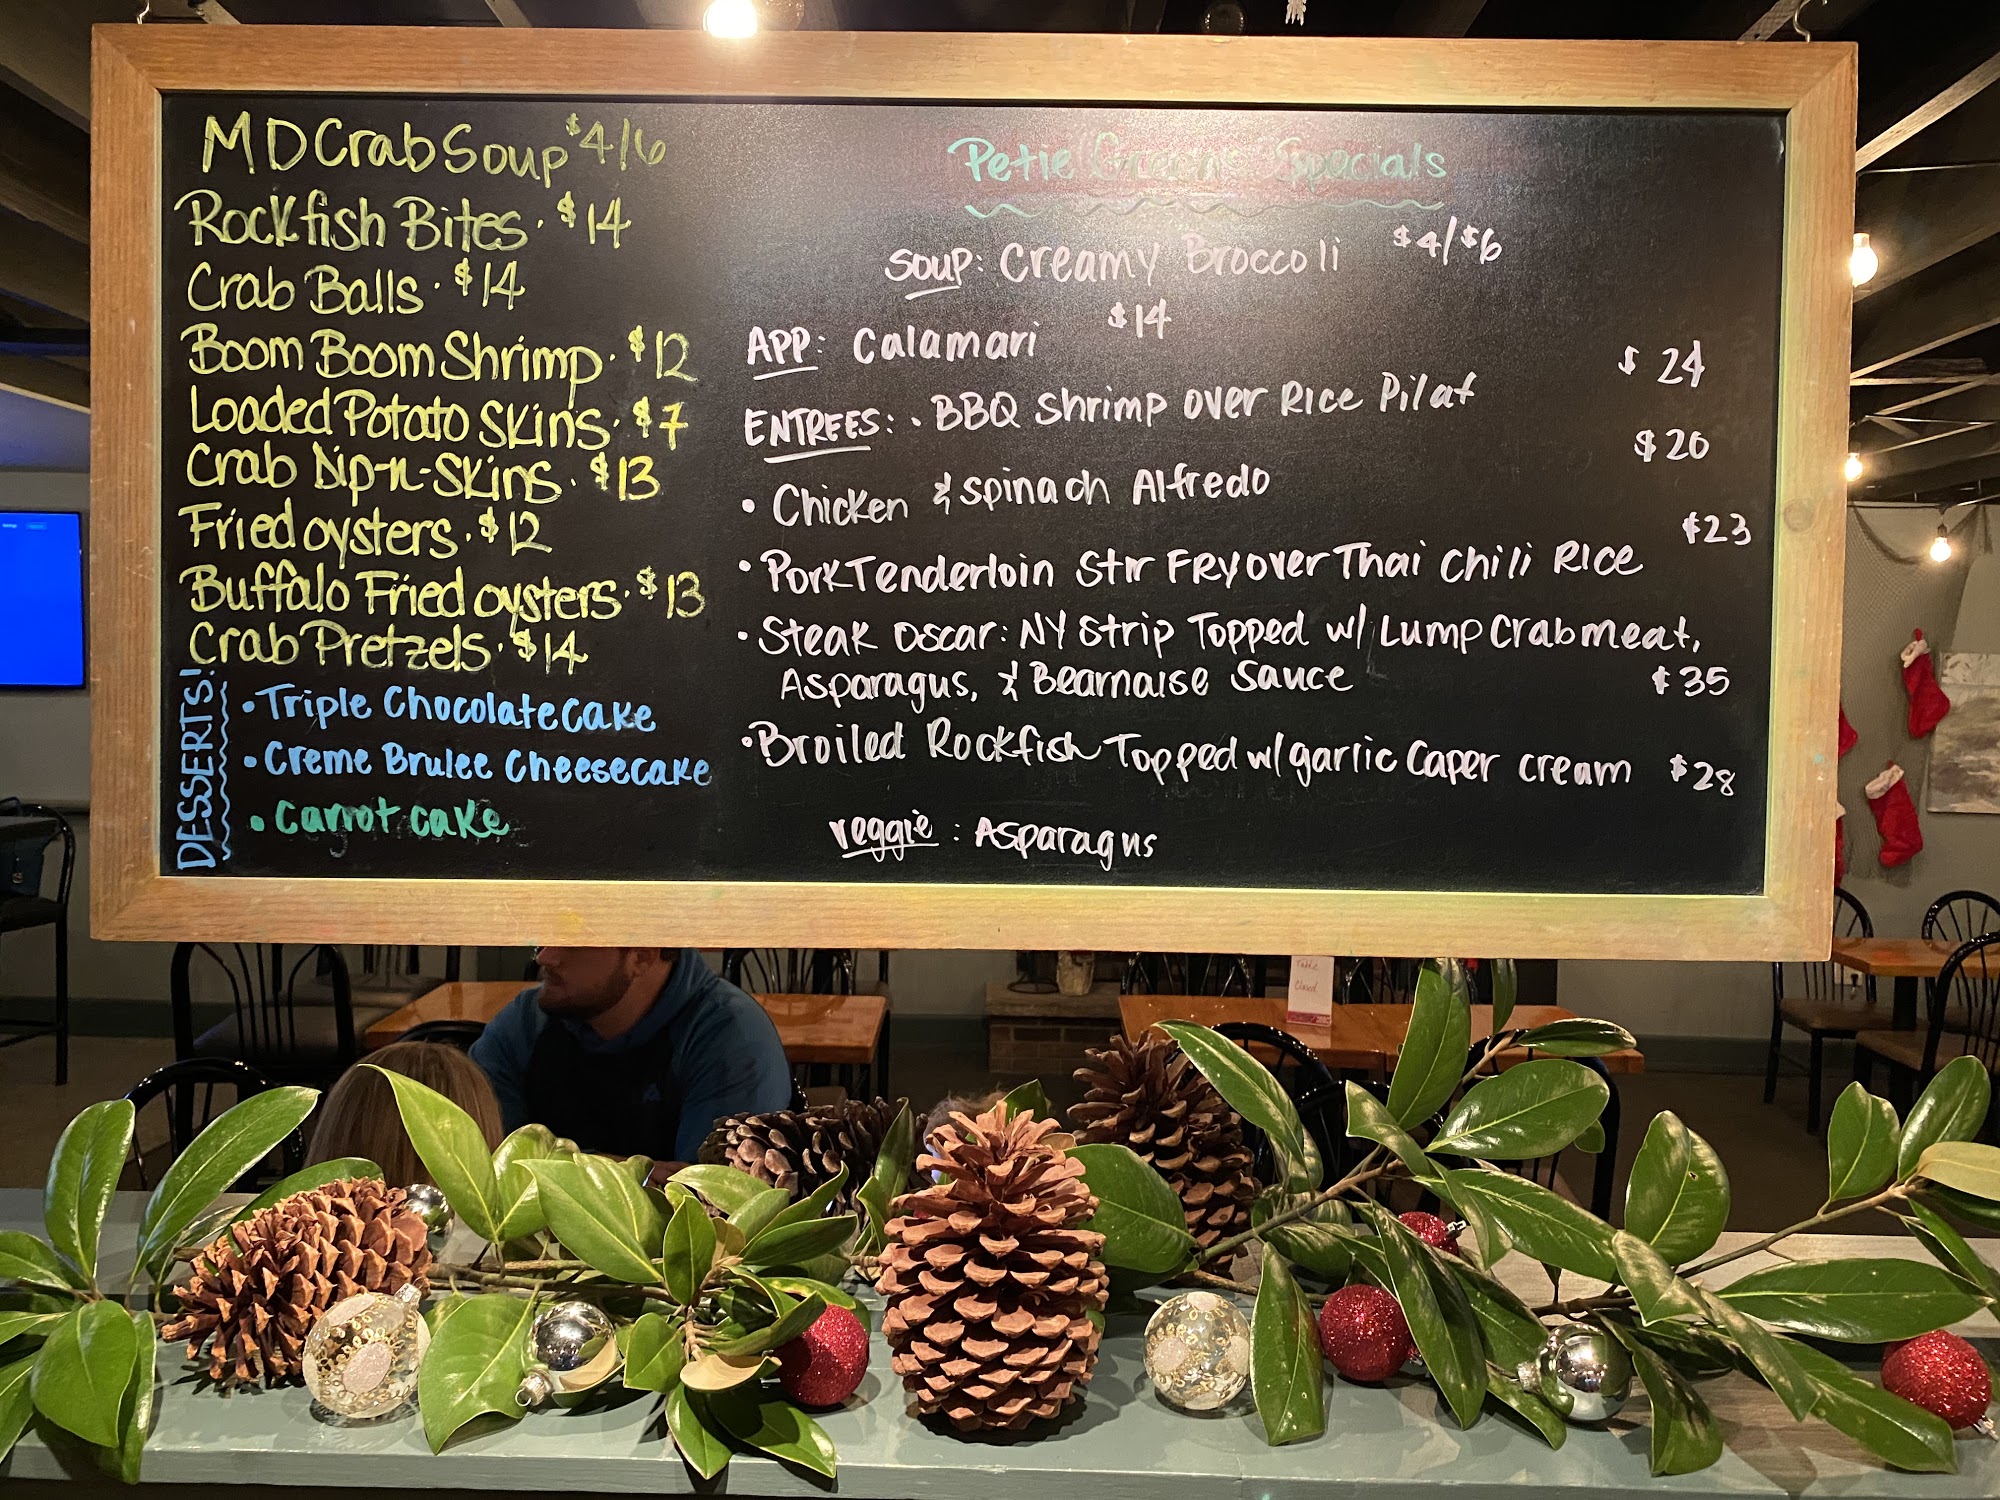 MD Crab Soup $4/6
Rockfish Bites · $14
Crab Balls · $14
Boom Boom Shrimp · $12
Loaded Potato Skins · $7
Crab Dip-n-Skins · $13
Fried oysters · $12
Buffalo Fried oysters · $13
Crab Pretzels · $14
DESSERTS!
• Triple Chocolate Cake
• Creme Brulee Cheesecake
• Carrot cake
Petie Greens Specials
Soup: Creamy Broccoli $4/$6
APP: Calamari $14
ENTREES: • BBQ Shrimp over Rice Pilaf $24
• Chicken & Spinach Alfredo $20
• Pork Tenderloin Stir Fry over Thai Chili Rice $23
• Steak Oscar: NY Strip Topped w/ Lump Crabmeat,
Asparagus, & Bearnaise Sauce $35
• Broiled Rockfish Topped w/ garlic Caper cream $28
veggie: Asparagus
Table
Closed